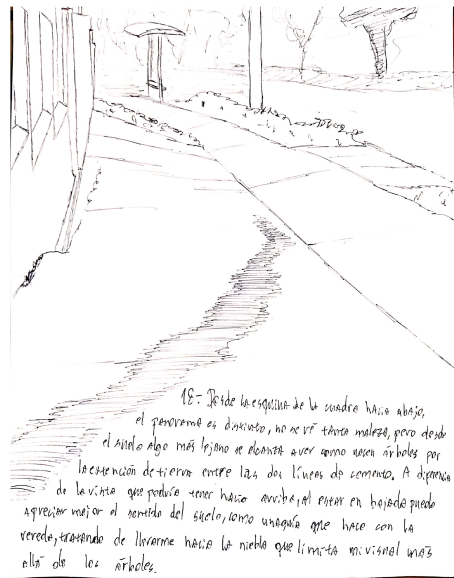 18.- Desde la esquina de la cuadra hacia abajo,
el panorama es distinto, no se vé tanta maleza, pero desde
el suelo algo más lejano se alcanza a ver como nacen árboles por
la extención de tierra entre las dos líneas de cemento. A diferencia
de la vista que podría tener hacia arriba, al estar en bajada puedo
apreciar mejor el sentido del suelo, como una guía que hace con la
vereda, tratando de llevarme hacia la niebla que limita mi visual más
allá de los árboles.